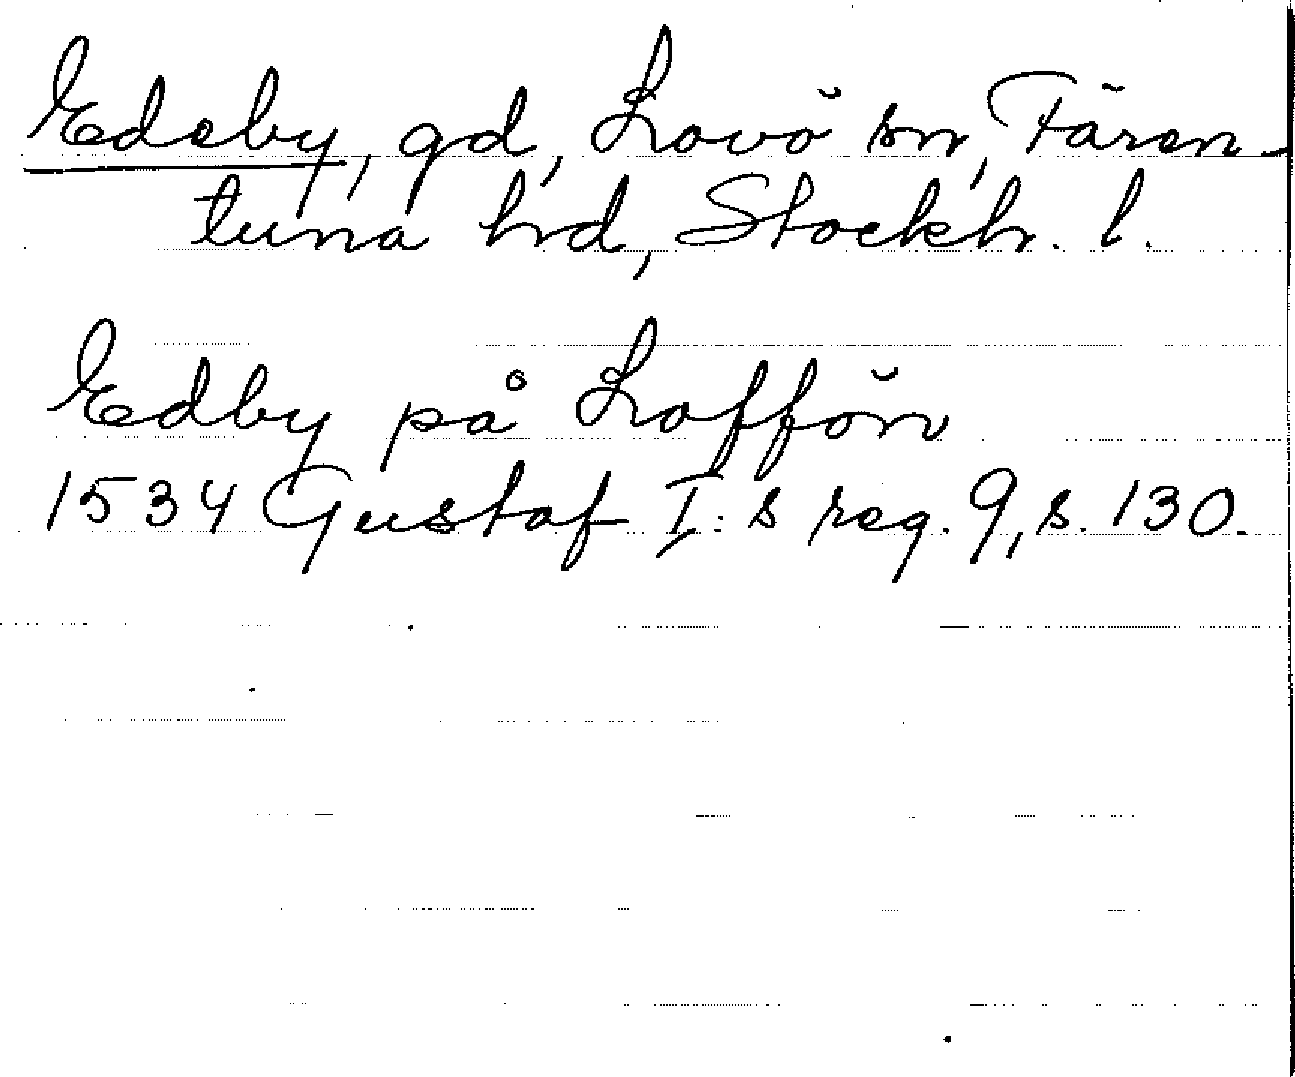 Edeby, gd, Lovö sn, Fären-
tuna hd, Stockh. l.
Edby på Loffön
1534 Gustaf I:s reg. 9, s. 130.